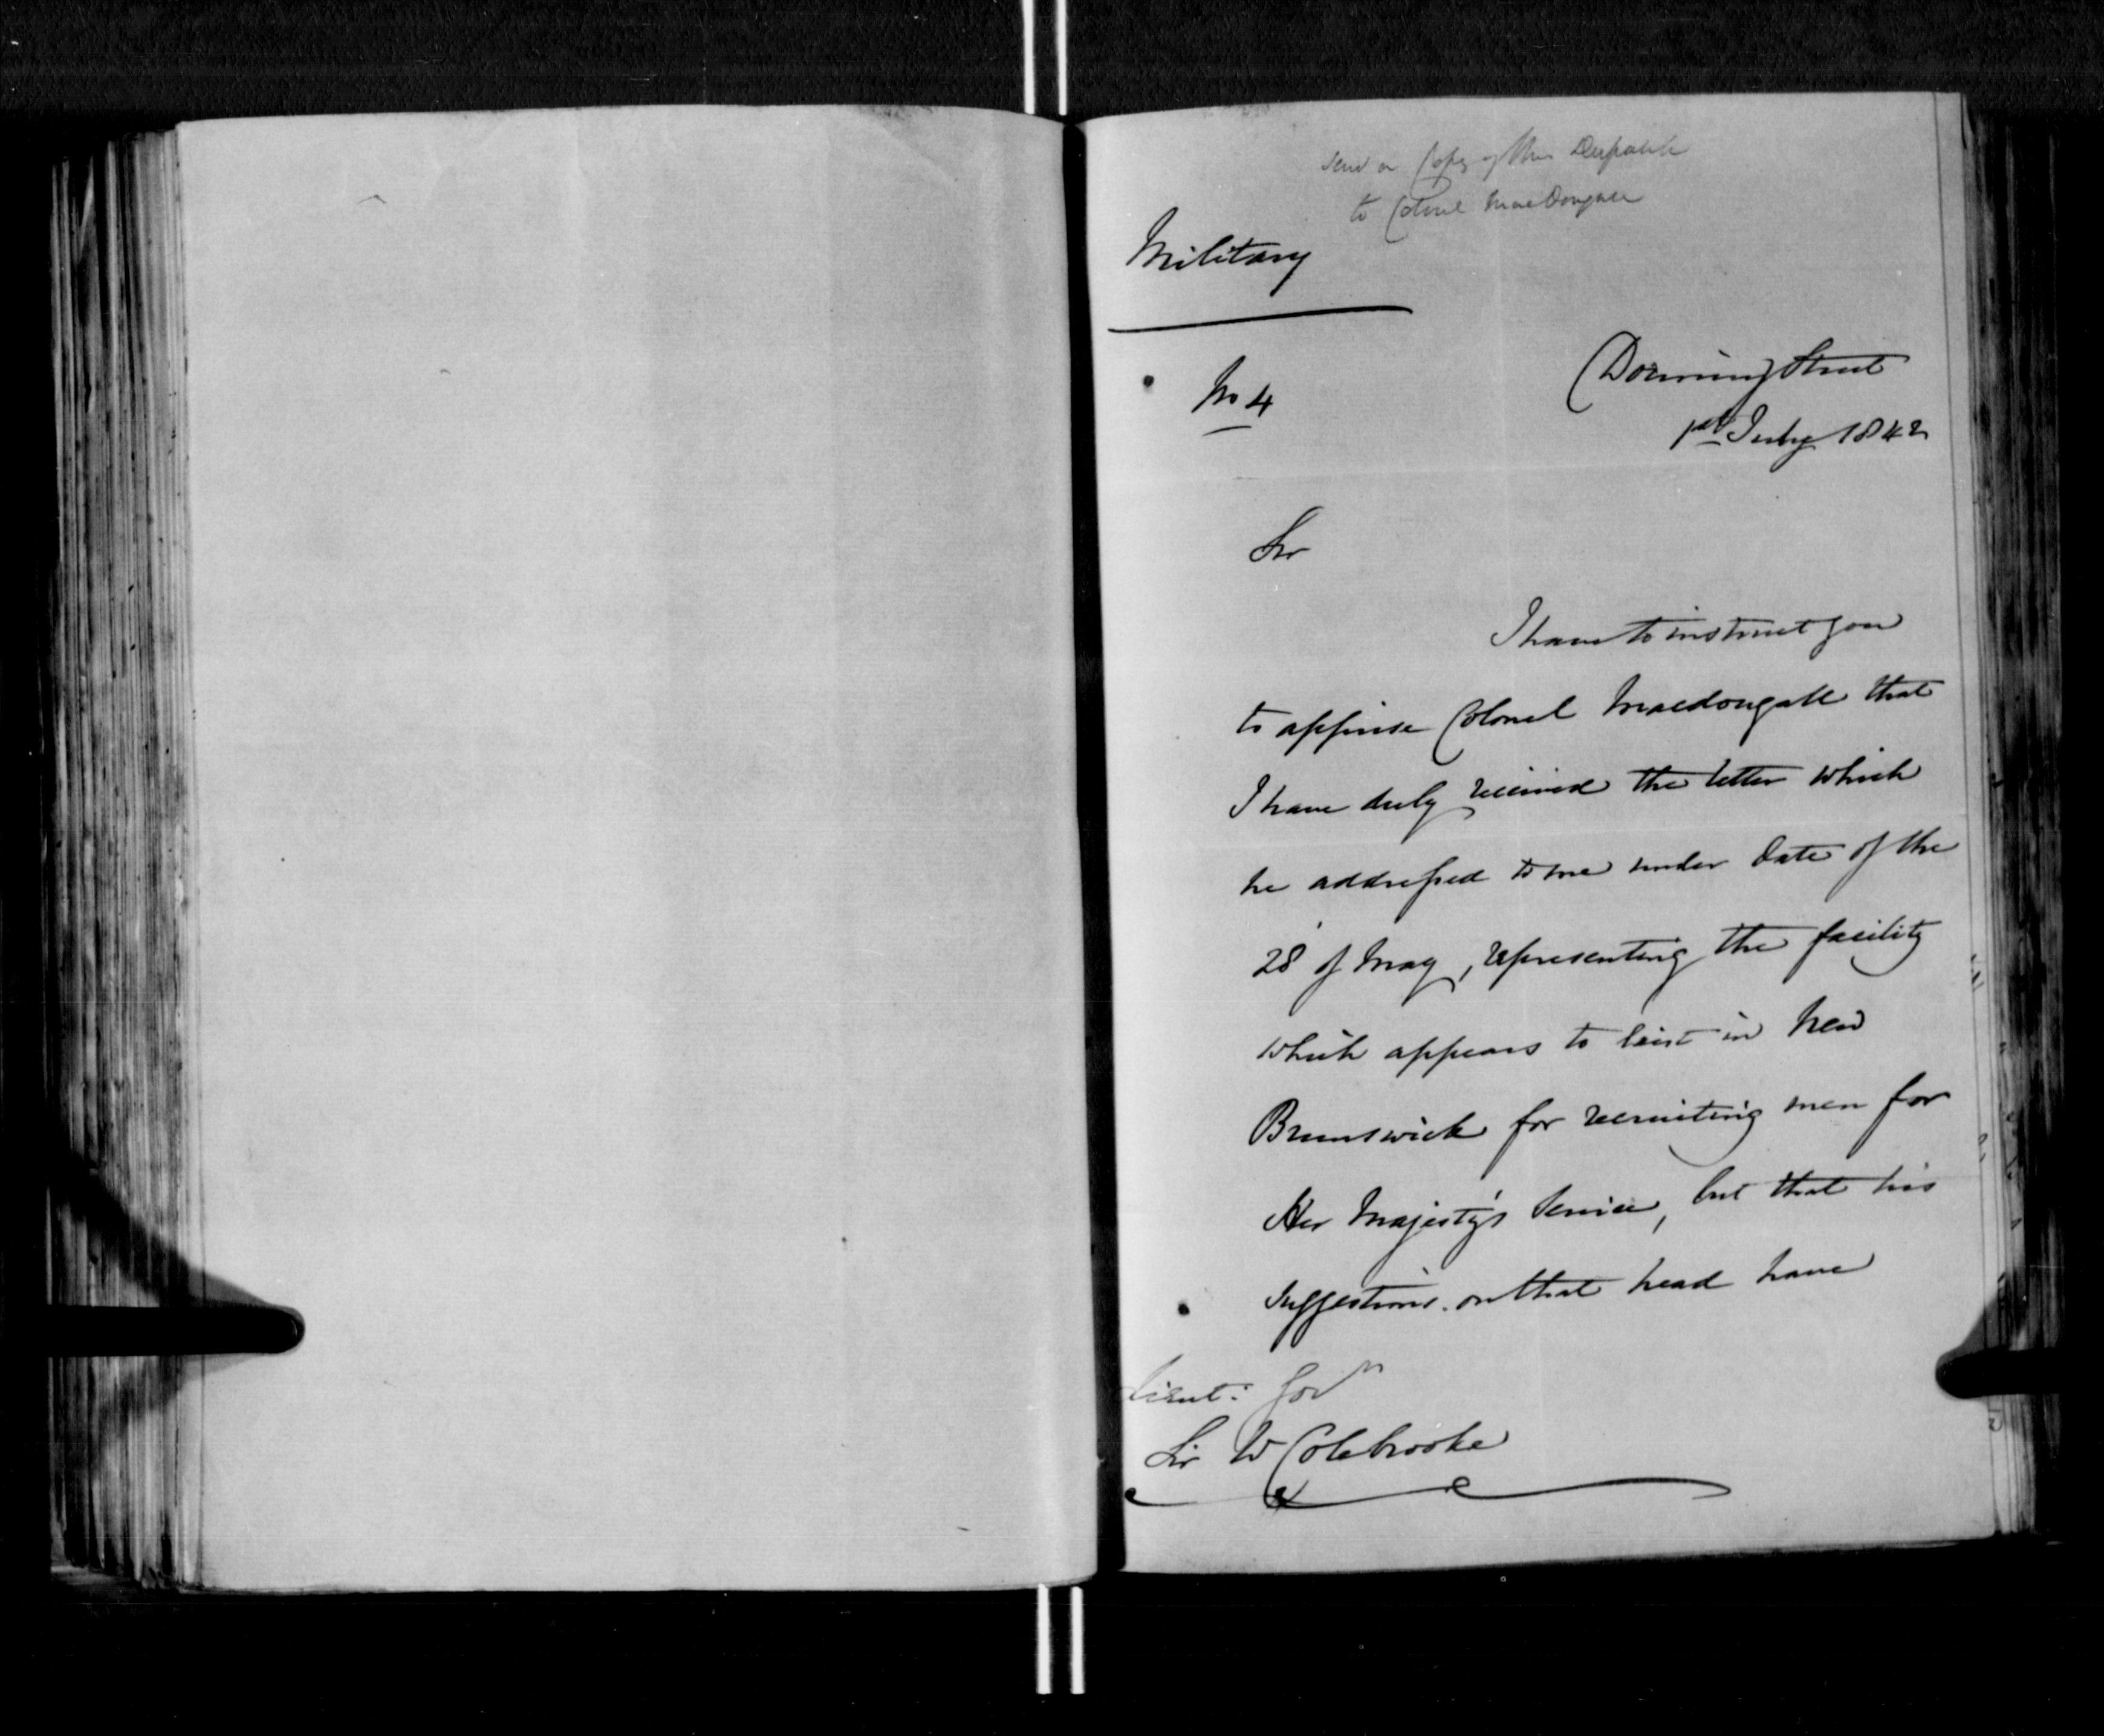 Send a Copy of this Despatch
to Colonel MacDougall
Military
No 4
Downing Street
1st July 1842
Sir
I have to instruct you
to apprise Colonel Macdougall that
I have duly received the letter which
he addressed to me under date of the
28 of May, representing the facility
which appears to exist in New
Brunswick for recruiting men for
Her Majesty's Service, but that his
suggestions on that head have
Lieut: Govr
Sir W Colebrooke